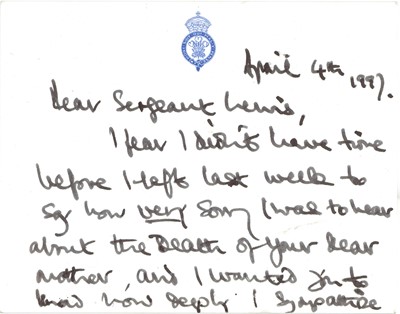 April 4th 1997.
Dear Sergeant Lewis,
I fear I didn't have time
before I left last week to
say how very sorry I was to hear
about the Death of your Dear
mother, and I wanted you to
know how deeply I sympathise